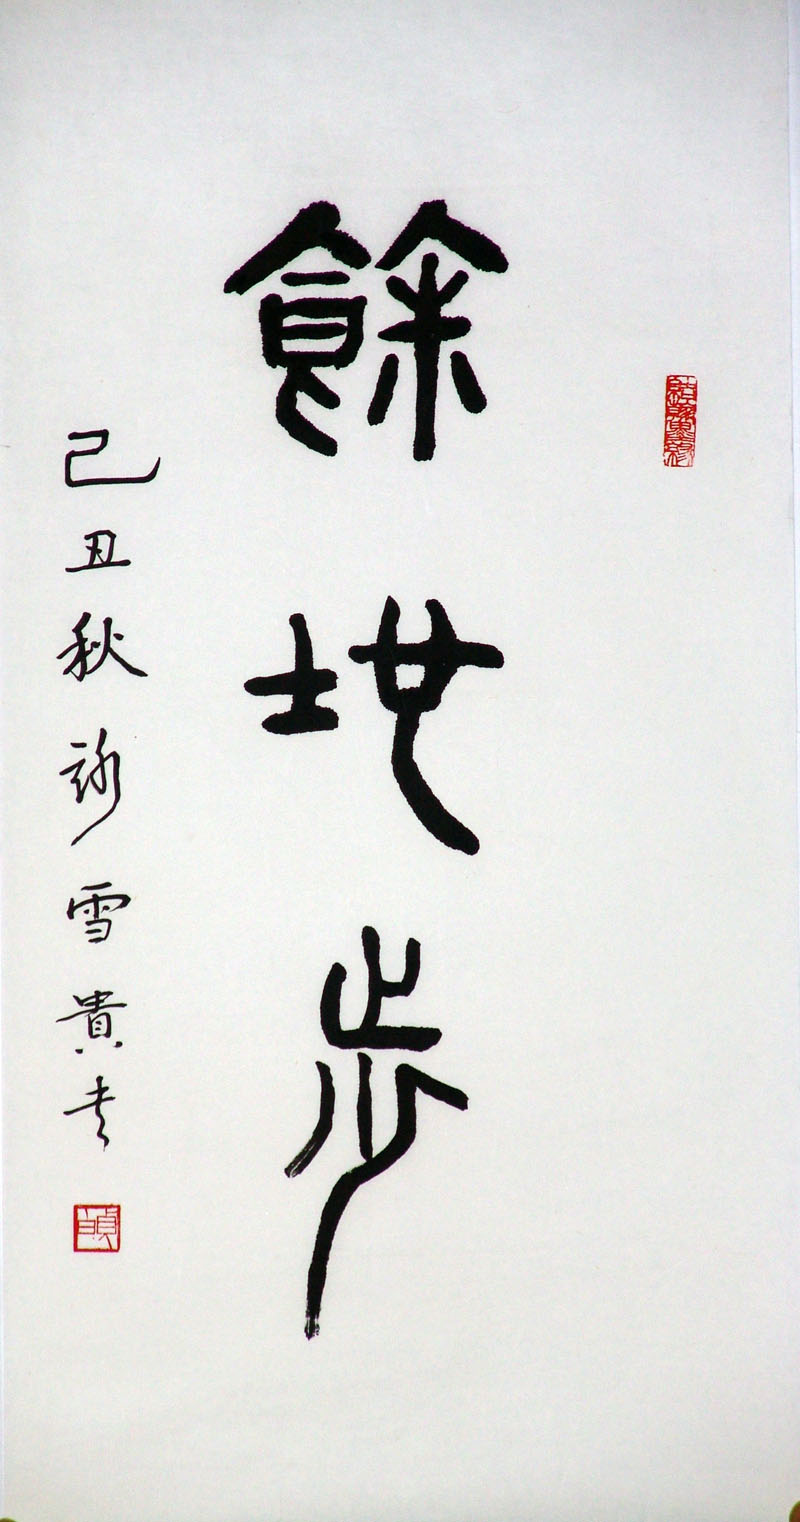 餘地步
己丑秋詠雪貴夫